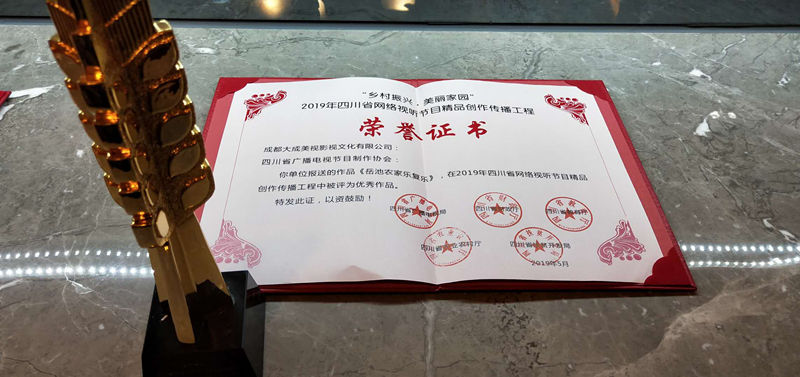 “乡村振兴，美丽家园”
2019年四川省网络视听节目精品创作传播工程
荣誉证书
成都大成美视影视文化有限公司：
四川省广播电视节目制作协会：
你单位报送的作品《岳池农家乐复乐》，在2019年四川省网络视听节目精品
创作传播工程中被评为优秀作品。
特发此证，以资鼓励！
2019年5月